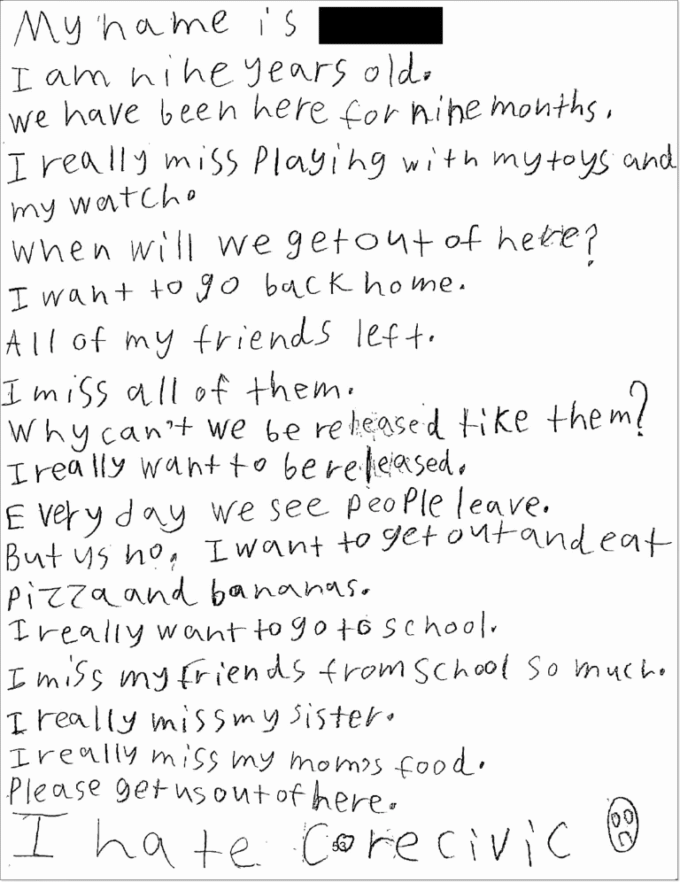 My name is
I am nine years old.
we have been here for nine months.
I really miss Playing with my toys and
my watch.
when will we get out of here?
I want to go back home.
All of my friends left.
I miss all of them.
Why can't we be released like them?
I really want to be released.
Every day we see people leave.
But us no. I want to get out and eat
pizza and bananas.
I really want to go to school.
I miss my friends from school so much.
I really miss my sister.
I really miss my mom's food.
Please get us out of here.
I hate Corecivic